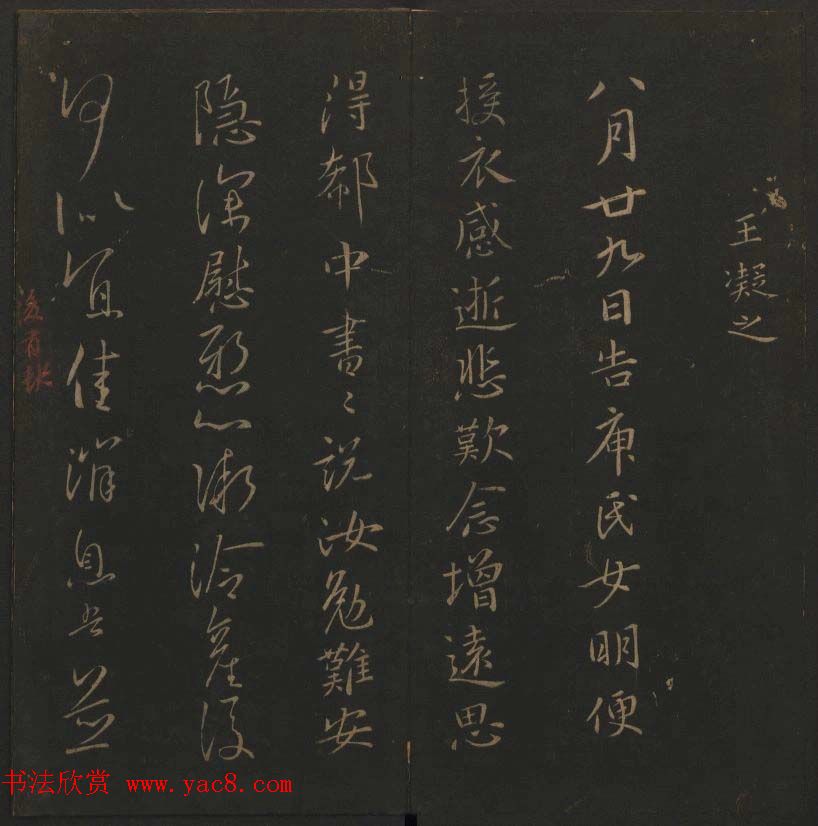 王凝之
八月廿九日告庾氏女明便
授衣感逝悲歎念增遠思
得郗中書書說汝勉難安
隱深慰懸心微冷產後
何似宜佳消息吾並
書法欣赏 www.yac8.com